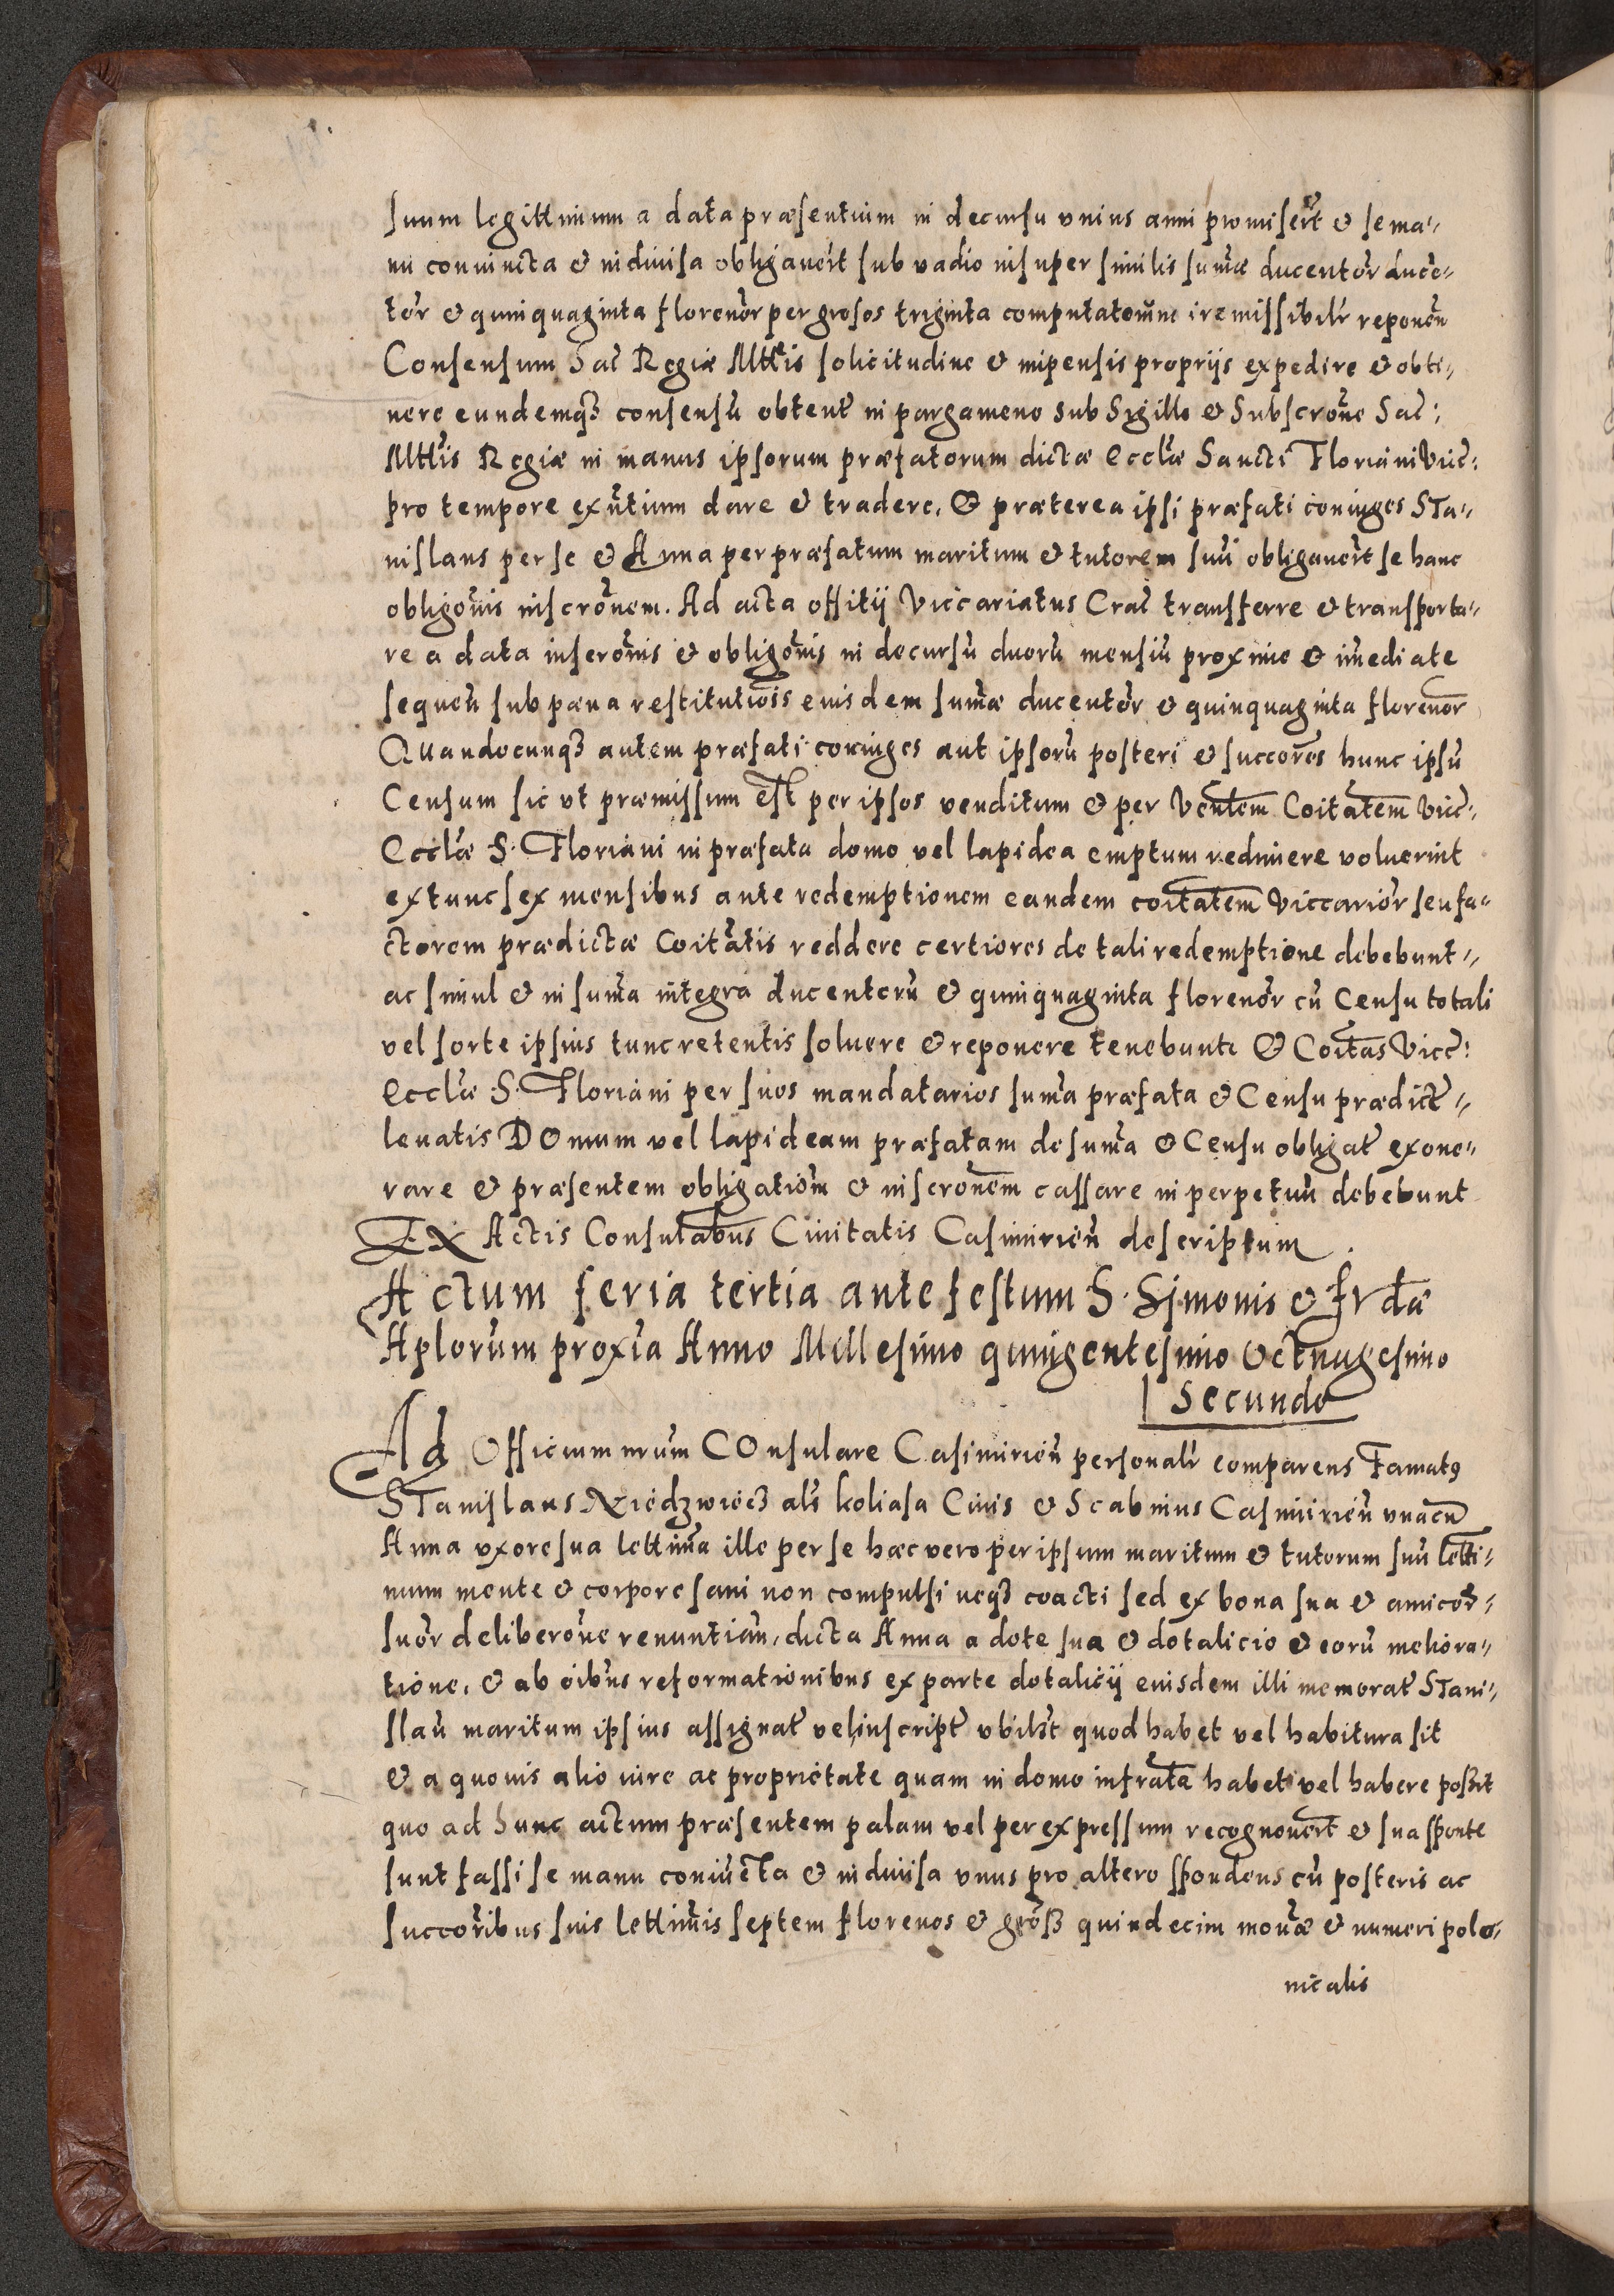 suum legittimum a data præsentium in decursu vnius anni promisert̃ & se ma-
nu coniuncta & indiuisa obligauert̃ sub vadio insuper similis sum̃æ ducentor̃ duce-
tor̃ & quinquaginta florenor̃ per grosos triginta computatom̃ne iremissibilr̃ reponen̄
Consensum Sac̃ Regiæ Mttis̃ solicitudine & inpensis proprijs expedire & obti-
nere eundemqȝ consensũ obtent̃ in pargameno sub Sigillo & Subscrõne Sac̃:
Mttis̃ Regiæ in manus ipsorum præfatorum dictæ Eccl̃æ Sancti Floriani Vicc̃:
pro tempore exñtium dare & tradere, & præterea ipsi præfati coniuges STa-
nislaus per se & Anna per præfatum maritum & tutorem suũ obligauert̃ se hanc
obligoñis inscrõnem. Ad acta offitij Viccariatus Crac̃ transferre & transporta-
re a data inscrõnis & obligoñis in decursũ duorũ mensiũ proxime & im̃ediate
sequen̄ sub pæna restitutiois̃ euisdem sum̃æ ducentor̃ & quinquaginta florenor̃
QUandocunqȝ autem præfati coniuges aut ipsorũ posteri & succores̃ hunc ipsũ
Censum sic vt præmissum est per ipsos venditum & per Ven̄lem Coitatem̃ Vicc̃:
Eccl̃æ S. Floriani in præfata domo vel lapidea emptum redimere voluerint
extunc sex mensibus ante redemptionem eandem coitatem̃ Viccarior̃ seu fa-
ctorem prædictæ Coitatis̃ reddere certiores de tali redemptione debebunt-
ac simul & in sum̃a integra ducentorũ & quinquaginta florenor̃ cũ Censu totali
vel sorte ipsius tunc retentis soluere & reponere tenebunt: & Coitas̃ Vicc̃:
Eccl̃æ S. Floriani per suos mandatarios sum̃a præfata & Censu prædict̃-
leuatis DOmum vel lapideam præfatam de sum̃a & Censu obligat̃ exone-
rare & præsentem obligatiom̃ & inscronem̃ cassare in perpetuũ debebunt
EX Actis Consulabus̃ Ciuitatis Casimirien̄ descriptum.
ACtum feria tertia ante festum S. Sjmonis & Irdæ̃
Aplorum̃ proxia̅ Anno Millesimo quingentesimo Octuagesimo
Secundo
Ad Officium nrum̃ COnsulare Casimirien̄ personalr̃ comparens Famatꝯ
STanislaus Niedzwiecȝ als̃ koliasa Ciuis & Scabinus Casimirien̄ vnacũ
Anna vxore sua lettima̅ ille per se hæc vero per ipsum maritum & tutorum suũ letti-
mum mente & corpore sani non compulsi neqȝ coacti sed ex bona sua & amicor̃-
suor̃ deliberoñe renuntian̄, dicta Anna a dote sua & dotalicio & eorũ meliora-
tione, & ab oĩbus reformationibus ex parte dotalicij euisdem illi memorat̃ STani-
slaũ maritum ipsius assignat̃ vel inscript̃ vbilȝt quod habet vel habitura sit
& a quouis alio iure ac proprietate quam in domo infrata̅ habet vel habere possit
quo ad hunc actum præsentem palam vel per expressum recognouert̃ & sua sponte
sunt fassi se manu coniũcta & indiuisa vnus pro altero spondens cũ posteris ac
succoribus̃ suis lettimis̃ septem florenos & gross̃ quindecim moñæ & numeri polo-
nicalis